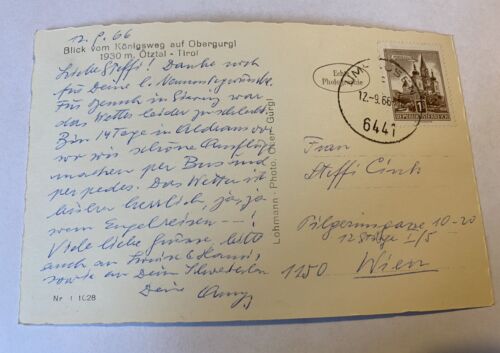 12.9.66
Blick vom Königsweg auf Obergurgl
1930 m. Ötztal - Tirol
Liebe Steffi! Danke noch
für Deine l. Namenstagswünsche.
Für Besuch in war
das Wetter leider zu schlecht.
Bin 14 Tage in
wo wir schöne Ausflüge
machen per Bus und
per pedes. Das Wetter ist
bisher herrlich, ja, ja
wenn Engel reisen --!
Viele liebe Grüsse bitte
auch an & Hansi,
sowie an Dein Schwesterlein
Deine
Nr. 1028
Lohmann - Photo. Ober-Gurgl
Echte
Photographie
UMHAUSEN
12.-9.66
6441
REPUBLIK ÖSTERREICH
Frau
Steffi Cink
Pilgerimgasse 10-20
12 Stiege I/5
1150 Wien